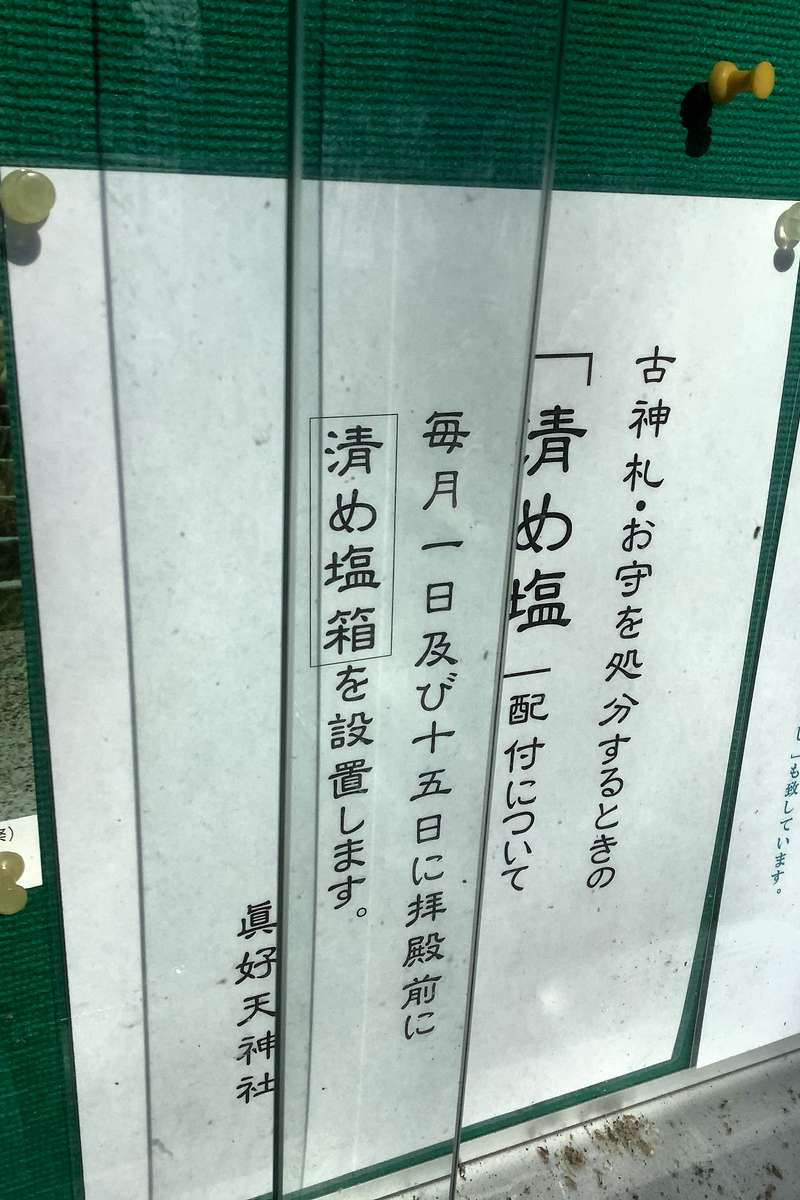 古神札・お守を処分するときの
「清め塩」配付について
毎月一日及び十五日に拝殿前に
清め塩箱を設置します。
眞好天神社
し」も致しています。